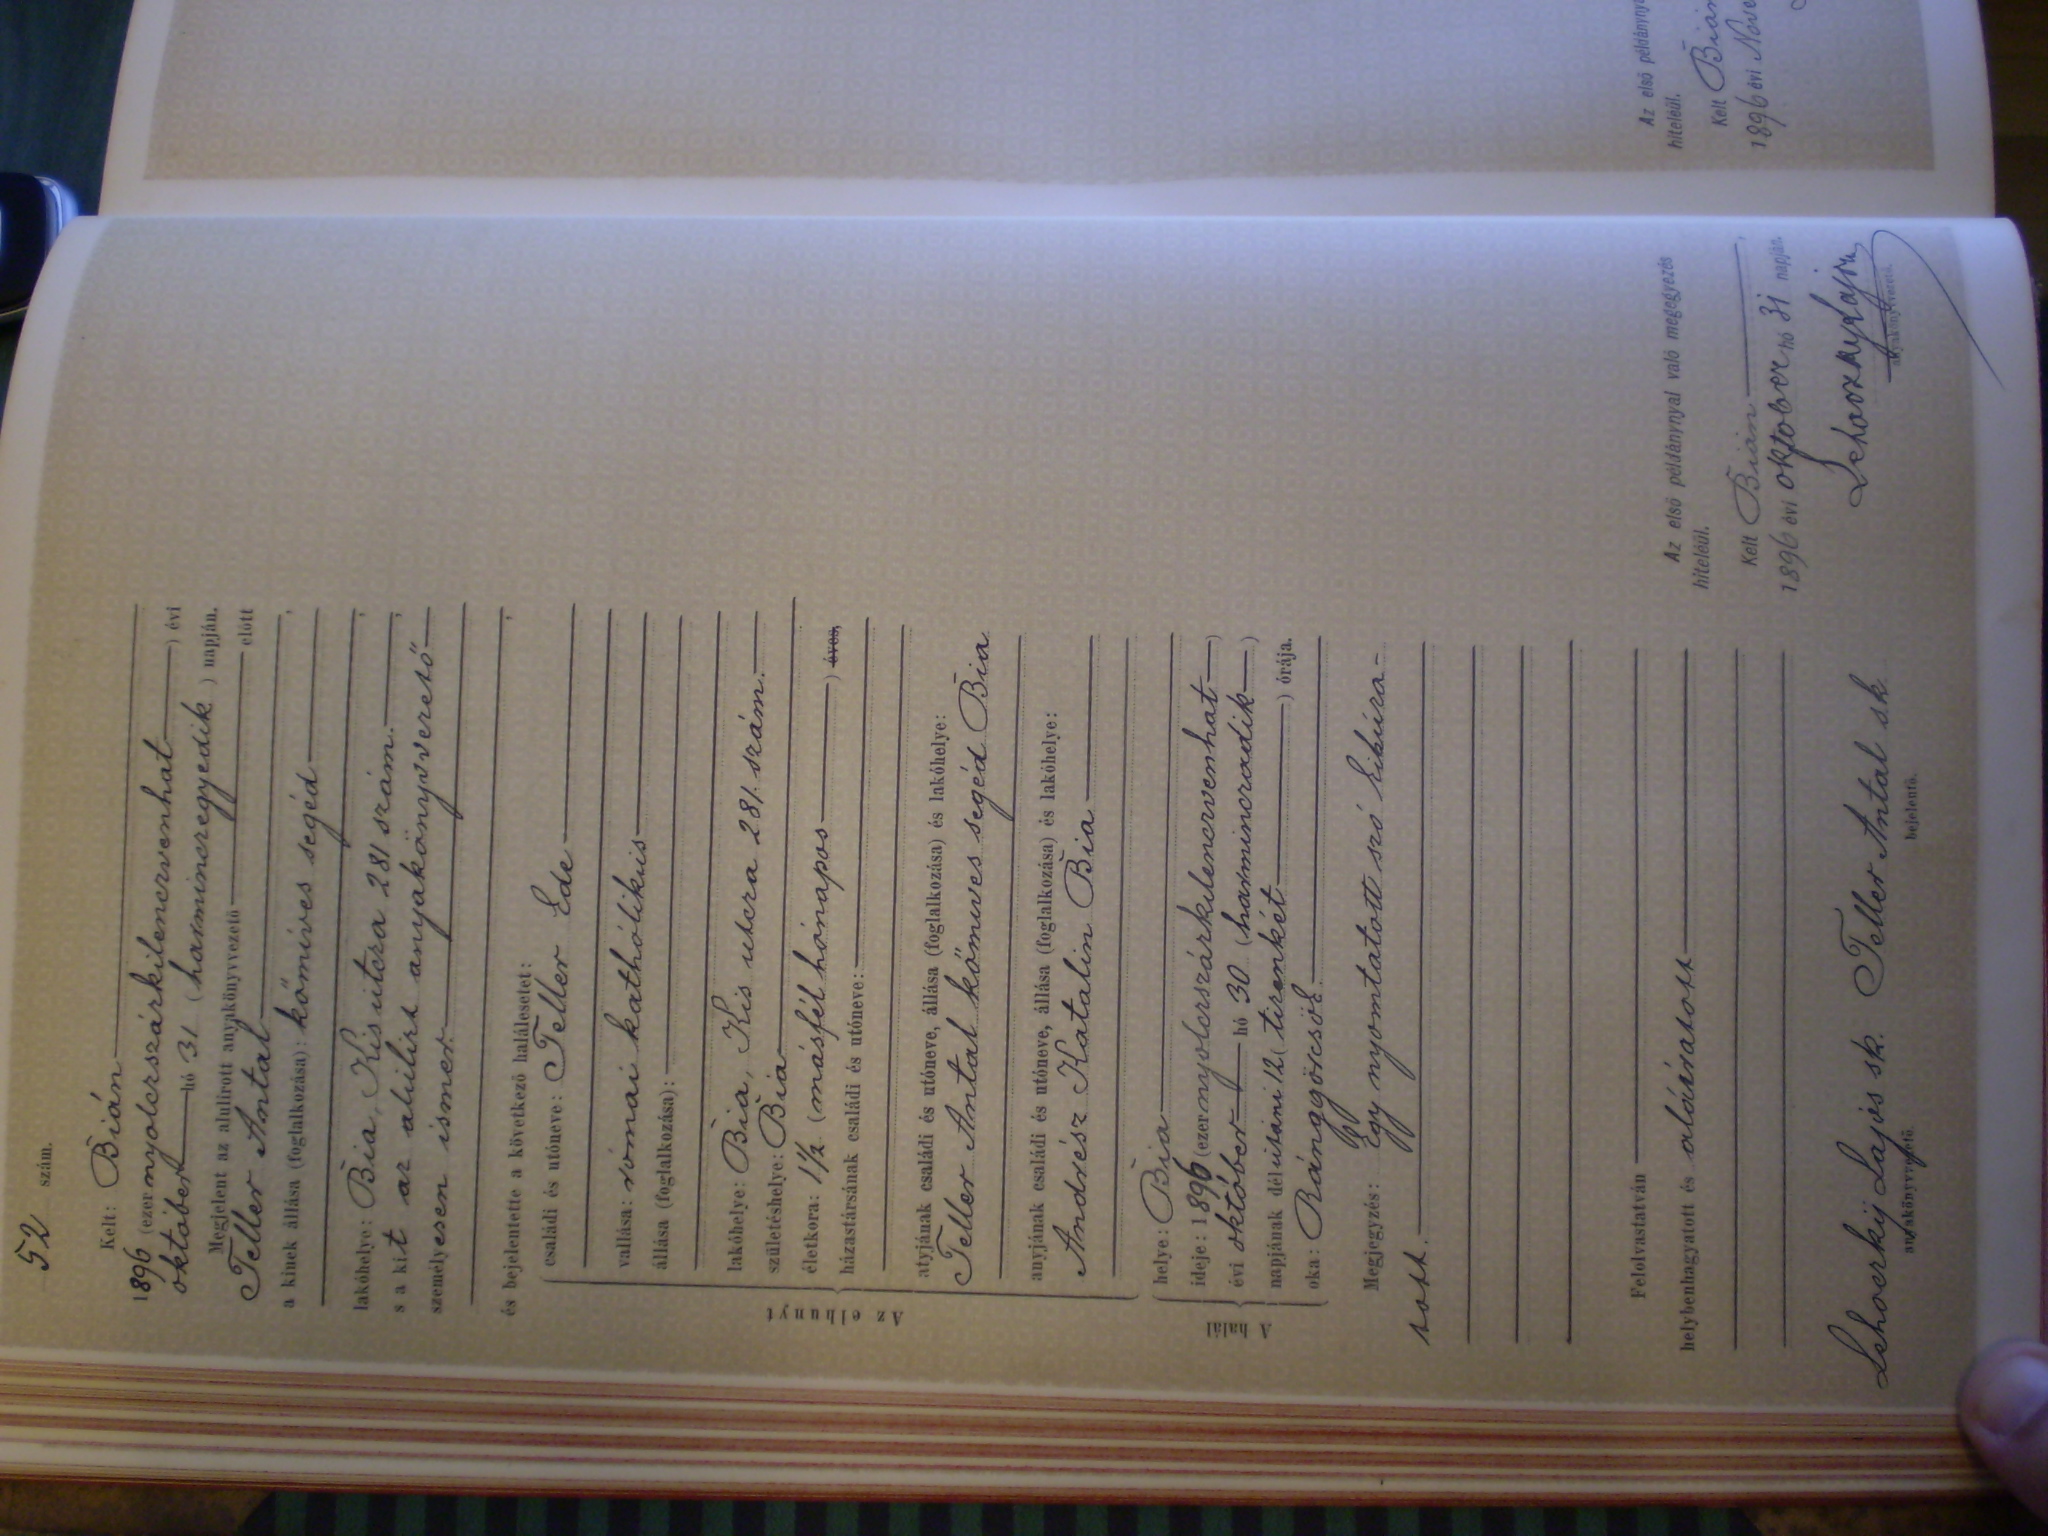 52 szám.
Kelt: Bián
1896 (ezernyolczszázkilenczvenhat) évi
október hó 31 (harminczegyedik) napján.
Megjelent az alulirott anyakönyvvezető előtt
Teller Antal,
a kinek állása (foglalkozása): kőmives segéd
lakóhelye: Bia, Kis utcza 281 szám.,
s a kit az alulirt anyakönyvvezető
személyesen ismer
és bejelentette a következő halálesetet:
Az elhunyt
családi és utóneve: Teller Ede
vallása: római katholikus
állása (foglalkozása):
lakóhelye: Bia, Kis utcza 281. szám.
születéshelye: Bia
életkora: 1½ (másfél hónapos) éves,
házastársának családi és utóneve:
atyjának családi és utóneve, állása (foglalkozása) és lakóhelye:
Teller Antal kőmives segéd Bia
anyjának családi és utóneve, állása (foglalkozása) és lakóhelye:
Andrész Katalin Bia
A halál
helye: Bia
ideje: 1896 (ezernyolczszázkilenczvenhat)
évi október hó 30 (harminczadik)
napjának délutáni 12 (tizenkét) órája.
oka: Rángógörcsök
Megjegyzés: Egy nyomtatott szó kihúzatott.
Felolvastatván
helybenhagyatott és aláíratott
Lehoczky Lajos sk.
anyakönyvvezető.
Teller Antal sk
bejelentő.
Az első példánynyal való megegyezés
hiteléül.
Kelt Bián,
1896 évi október hó 31 napján.
Lehoczky Lajos
anyakönyvvezető.
Az első példányny
hiteléül.
Kelt Bián
1896 évi Nove